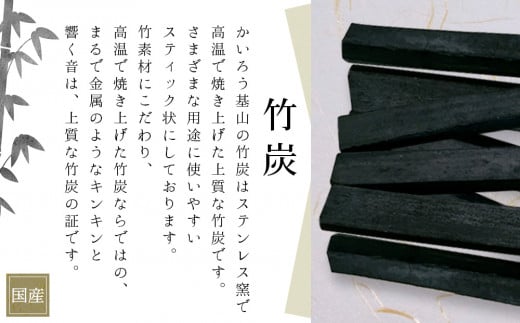 竹炭
かいろう基山の竹炭はステンレス窯で
高温で焼き上げた上質な竹炭です。
さまざまな用途に使いやすい
スティック状にしております。
竹素材にこだわり、
高温で焼き上げた竹炭ならではの、
まるで金属のようなキンキンと
響く音は、上質な竹炭の証です。
国産